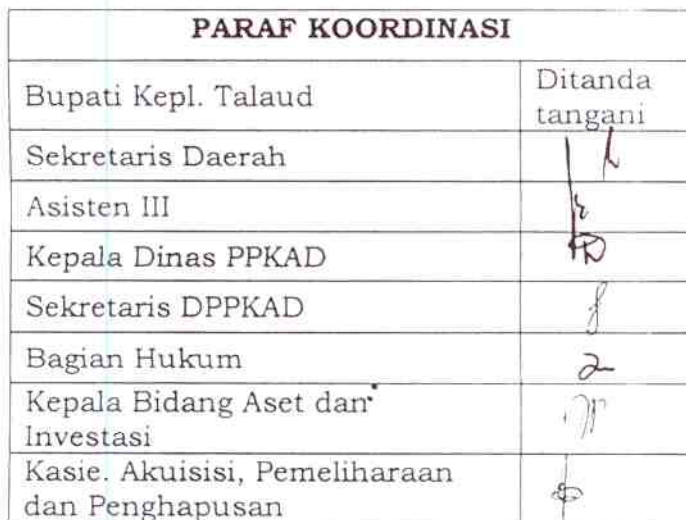 PARAF KOORDINASI
Bupati Kepl. Talaud
Ditanda
tangani
Sekretaris Daerah
Asisten III
Kepala Dinas PPKAD
Sekretaris DPPKAD
Bagian Hukum
Kepala Bidang Aset dan
Investasi
Kasie. Akuisisi, Pemeliharaan
dan Penghapusan